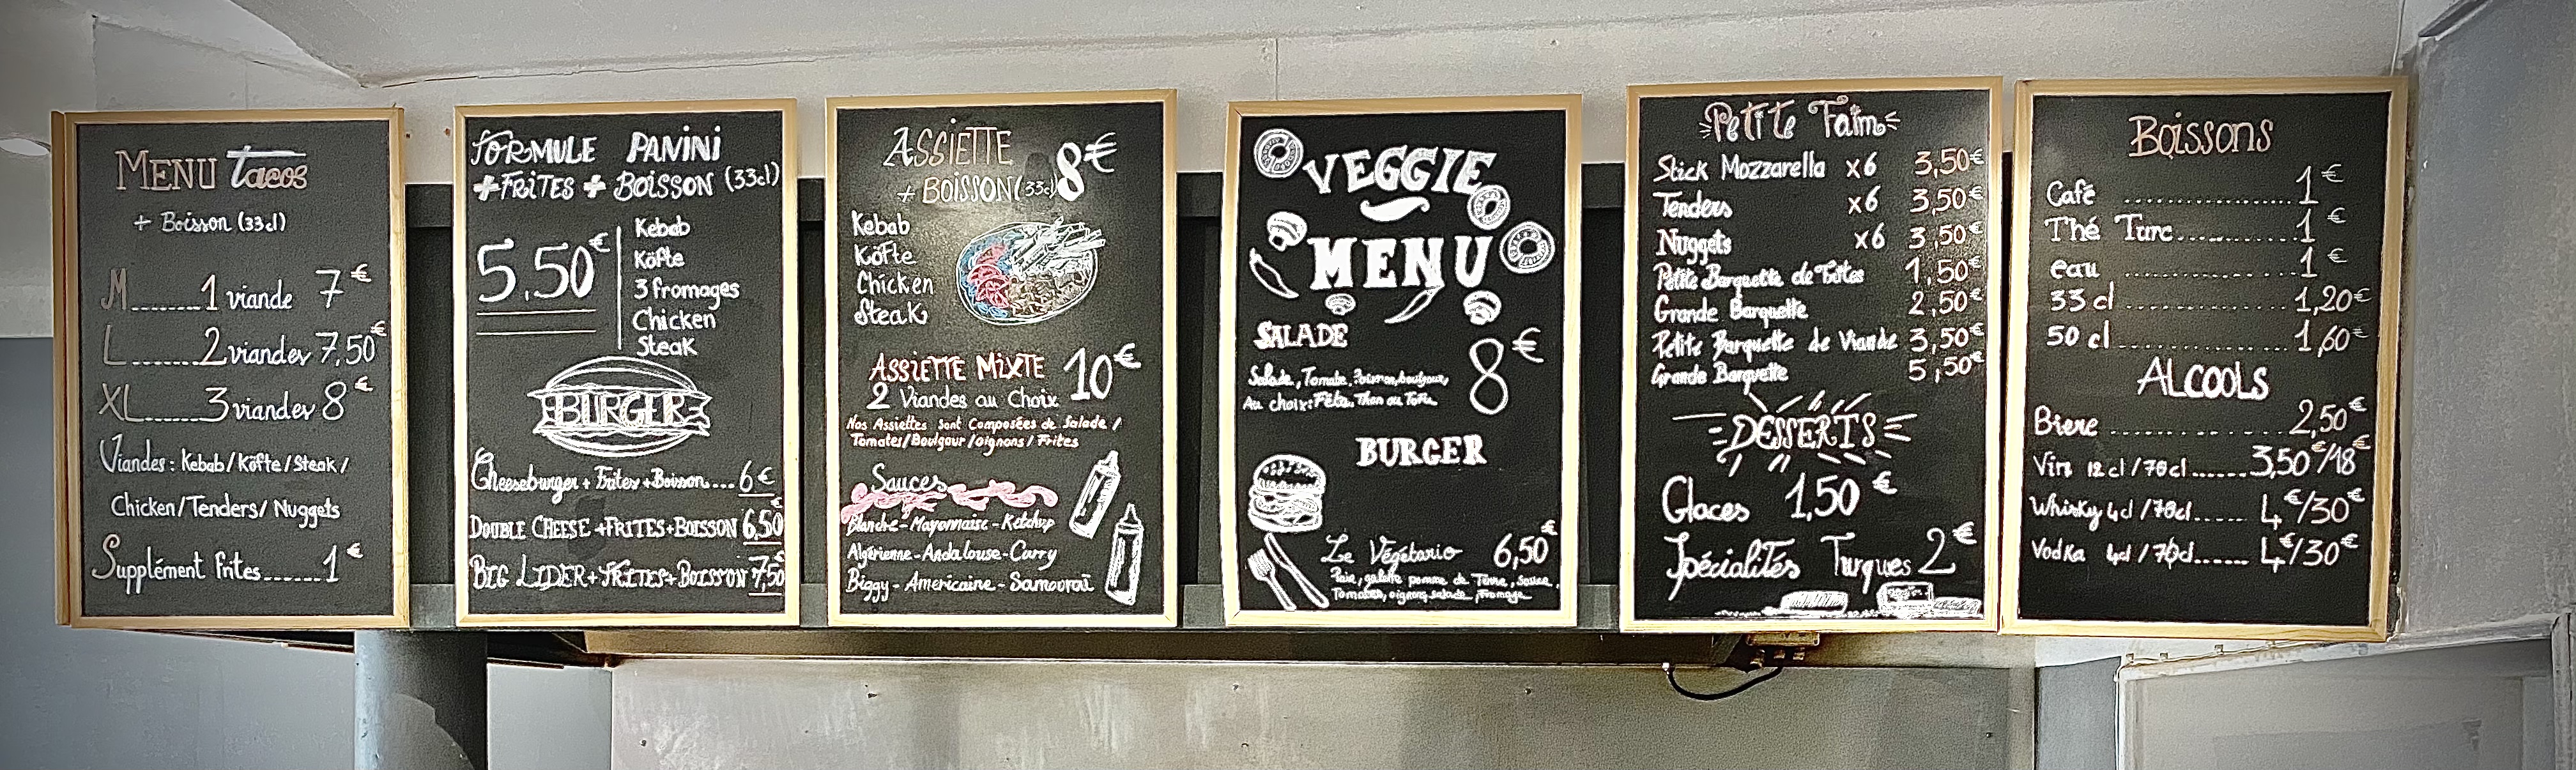 MENU tacos
+ Boisson (33cl)
M.......1 viande 7€
L.......2 viandes 7,50€
XL.......3 viandes 8€
Viandes : Kebab/Köfte/Steak/
Chicken/Tenders/Nuggets
Supplément frites......1€
FORMULE PANINI
+FRITES + BOISSON (33cl)
5,50€
Kebab
Köfte
3 fromages
Chicken
Steak
BURGER
Cheeseburger + Frites + Boisson.... 6€
DOUBLE CHEESE +FRITES+BOISSON 6,50€
BIG LIDER+FRITES+BOISSON 7,50
ASSIETTE 8€
+ BOISSON (33cl)
Kebab
Köfte
Chicken
Steak
ASSIETTE MIXTE 10€
2 Viandes au Choix
Nos Assiettes sont Composées de Salade /
Tomates/Boulgour/oignons/Frites
Sauces
Blanche - Mayonnaise - Ketchup
Algérienne - Andalouse - Curry
Biggy - Americaine - Samouraï
VEGGIE
MENU
SALADE
8€
Salade, Tomate, Poivron, boulgour,
Au choix: Féta, Thon ou Tofu
BURGER
Le Végétario 6,50€
Pain, galette pomme de Terre, sauce,
Tomates, oignons, salade, fromage
Petite Faim
Stick Mozzarella x6 3,50€
Tenders x6 3,50€
Nuggets x6 3,50€
Petite Barquette de frites 1,50€
Grande Barquette 2,50€
Petite Barquette de Viande 3,50€
Grande Barquette 5,50€
DESSERTS
Glaces 1,50€
Spécialités Turques 2€
BOISSONS
Café ..................... 1€
Thé Turc................ 1€
eau ..................... 1€
33 cl .................... 1,20€
50 cl .................... 1,60€
ALCOOLS
Biere .................... 2,50€
Vin 12 cl / 70 cl....... 3,50€/18€
Whisky 4cl / 70cl....... 4€/30€
Vodka 4cl / 70cl....... 4€/30€